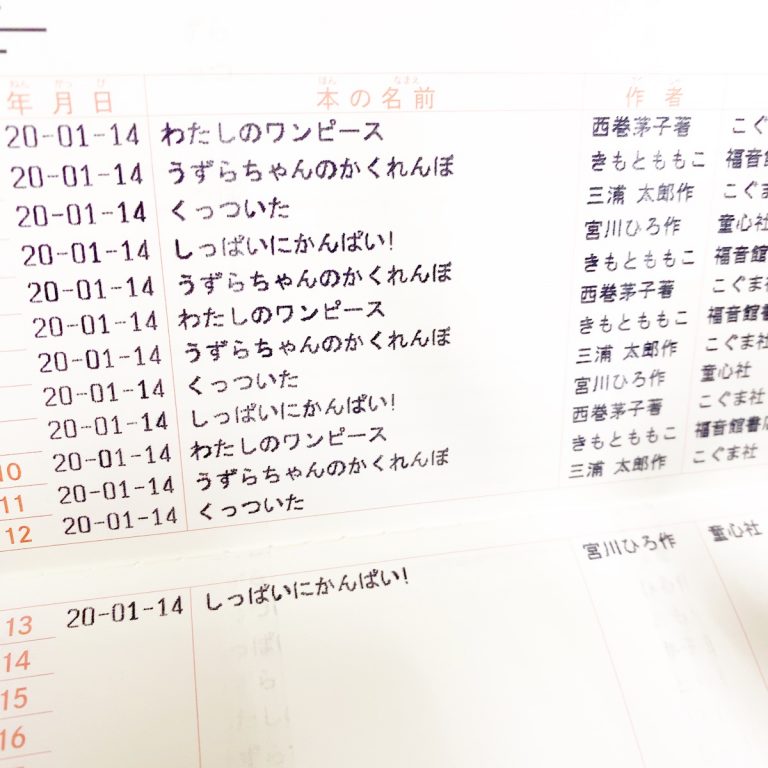 年月日 本の名前 作者
20-01-14 わたしのワンピース 西巻茅子著 こぐ
20-01-14 うずらちゃんのかくれんぼ きもとももこ 福音館
20-01-14 くっついた 三浦 太郎作 こぐま
20-01-14 しっぱいにかんぱい! 宮川ひろ作 童心社
20-01-14 うずらちゃんのかくれんぼ きもとももこ 福音館
20-01-14 わたしのワンピース 西巻茅子著 こぐま社
20-01-14 うずらちゃんのかくれんぼ きもとももこ 福音館書
20-01-14 くっついた 三浦 太郎作 こぐま社
20-01-14 しっぱいにかんぱい! 宮川ひろ作 童心社
10 20-01-14 わたしのワンピース 西巻茅子著 こぐま社
11 20-01-14 うずらちゃんのかくれんぼ きもとももこ 福音館書店
12 20-01-14 くっついた 三浦 太郎作 こぐま社
13 20-01-14 しっぱいにかんぱい! 宮川ひろ作 童心社
14
15
16